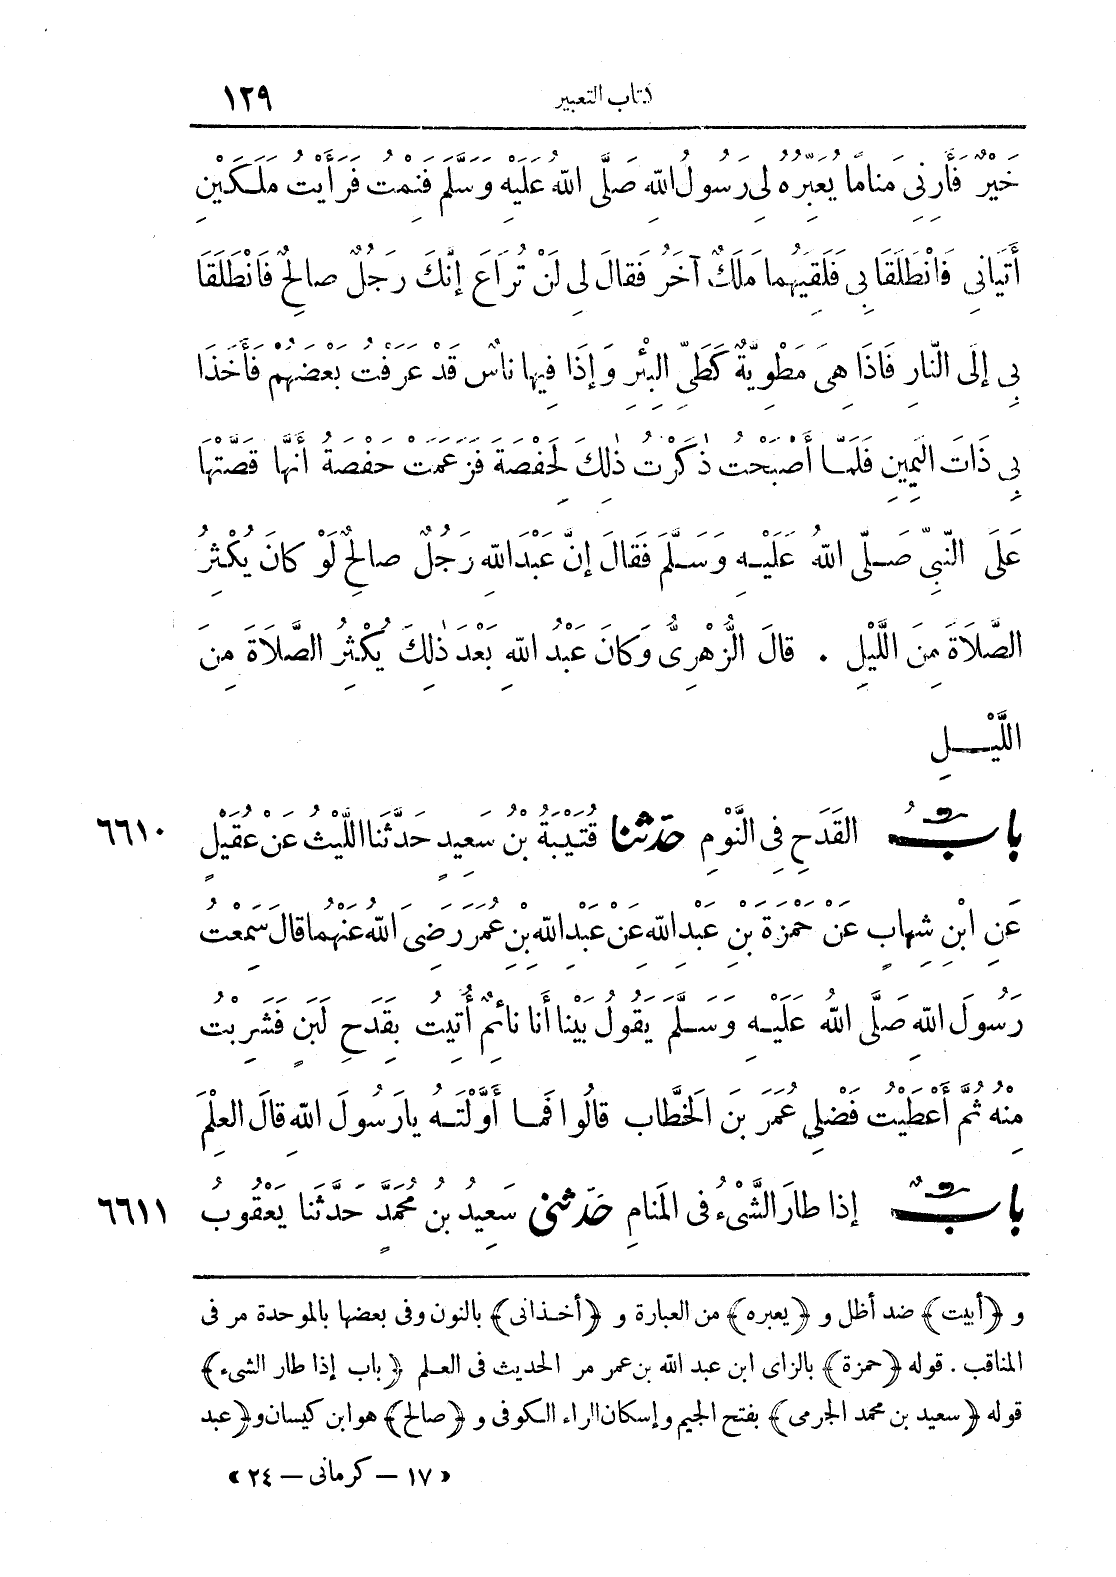 كتاب التعبير ١٢٩
خَيْرٌ فَأَرِنِى مَنامًا يُعَبِّرُهُ لِى رَسُولُ اللهِ صَلَّى اللهُ عَلَيْهِ وَسَلَّمَ فَنِمْتُ فَرَأَيْتُ مَلَكَيْنِ
أَتَيانِى فَانْطَلَقَا بِى فَلَقِيَهُما مَلَكٌ آخَرُ فَقالَ لِى لَنْ تُرَاعَ إِنَّكَ رَجُلٌ صالِحٌ فَانْطَلَقَا
بِى إِلَى النَّارِ فَاذَا هِىَ مَطْوِيَّةٌ كَطَىِّ البِئْرِ وَإِذَا فِيها ناسٌ قَدْ عَرَفْتُ بَعْضَهُمْ فَأَخَذَا
بِى ذَاتَ اليَمِينِ فَلَمَّا أَصْبَحْتُ ذَكَرْتُ ذٰلِكَ لِحَفْصَةَ فَزَعَمَتْ حَفْصَةُ أَنَّها قَصَّتْها
عَلَى النَّبِىِّ صَلَّى اللهُ عَلَيْهِ وَسَلَّمَ فَقَالَ إِنَّ عَبْدَ اللهِ رَجُلٌ صالِحٌ لَوْ كانَ يُكْثِرُ
الصَّلَاةَ مِنَ اللَّيْلِ . قالَ الزُّهْرِىُّ وَكانَ عَبْدُ اللهِ بَعْدَ ذٰلِكَ يُكْثِرُ الصَّلَاةَ مِنَ
اللَّيْلِ
بابُ القَدَحِ فِى النَّوْمِ حدثنا قُتَيْبَةُ بْنُ سَعِيدٍ حَدَّثَنا اللَّيْثُ عَنْ عُقَيْلٍ ٦٦١٠
عَنِ ابْنِ شِهابٍ عَنْ حَمْزَةَ بْنِ عَبْدِ اللهِ عَنْ عَبْدِ اللهِ بْنِ عُمَرَ رَضِىَ اللهُ عَنْهُما قالَ سَمِعْتُ
رَسُولَ اللهِ صَلَّى اللهُ عَلَيْهِ وَسَلَّمَ يَقُولُ بَيْنا أَنا نائِمٌ أُتِيتُ بِقَدَحِ لَبَنٍ فَشَرِبْتُ
مِنْهُ ثُمَّ أَعْطَيْتُ فَضْلِى عُمَرَ بنَ الخَطَّابِ قالُوا فَما أَوَّلْتَهُ يارَسُولَ اللهِ قالَ العِلْمَ
بابٌ إذا طارَ الشَّىْءُ فى المَنامِ حدثنى سَعِيدُ بنُ مُحَمَّدٍ حَدَّثَنا يَعْقُوبُ ٦٦١١
و ﴿أبيت﴾ ضد أظل و ﴿يعبره﴾ من العبارة و ﴿أخذانى﴾ بالنون وفى بعضها بالموحدة مر فى
المناقب . قوله ﴿حمزة﴾ بالزاى ابن عبد الله بن عمر مر الحديث فى العلم ﴿باب إذا طار الشىء﴾
قوله ﴿سعيد بن محمد الجرمى﴾ بفتح الجيم وإسكان الراء الكوفى و ﴿صالح﴾ هو ابن كيسان و ﴿عبد
« ١٧ – كرمانى – ٢٤ »